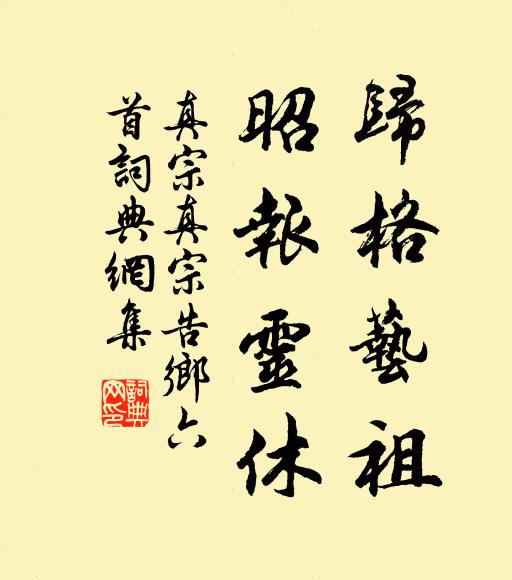 歸格藝祖
昭報靈休
真宗真宗告鄉六
首詞典網集
詞典
网印